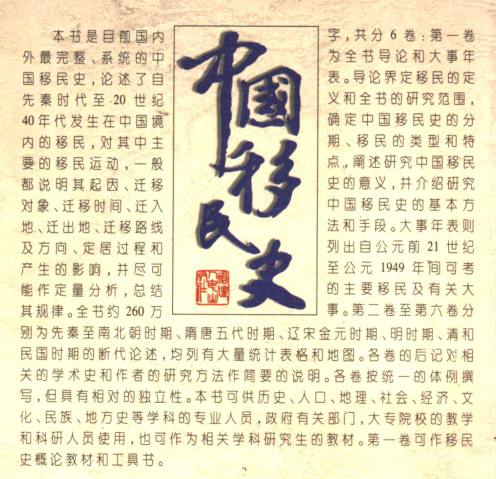 中國移民史
本书是目前国内
外最完整、系统的中
国移民史,论述了自
先秦时代至20世纪
40年代发生在中国境
内的移民,对其中主
要的移民运动,一般
都说明其起因、迁移
对象、迁移时间、迁入
地、迁出地、迁移路线
及方向、定居过程和
产生的影响,并尽可
能作定量分析,总结
其规律。全书约260万
字,共分6卷:第一卷
为全书导论和大事年
表。导论界定移民的定
义和全书的研究范围,
确定中国移民史的分
期、移民的类型和特
点,阐述研究中国移民
史的意义,并介绍研究
中国移民史的基本方
法和手段。大事年表则
列出自公元前21世纪
至公元1949年间可考
的主要移民及有关大
事。第二卷至第六卷分
别为先秦至南北朝时期、隋唐五代时期、辽宋金元时期、明时期、清和
民国时期的断代论述,均列有大量统计表格和地图。各卷的后记对相
关的学术史和作者的研究方法作简要的说明。各卷按统一的体例撰
写,但具有相对的独立性。本书可供历史、人口、地理、社会、经济、文
化、民族、地方史等学科的专业人员,政府有关部门,大专院校的教学
和科研人员使用,也可作为相关学科研究生的教材。第一卷可作移民
史概论教材和工具书。